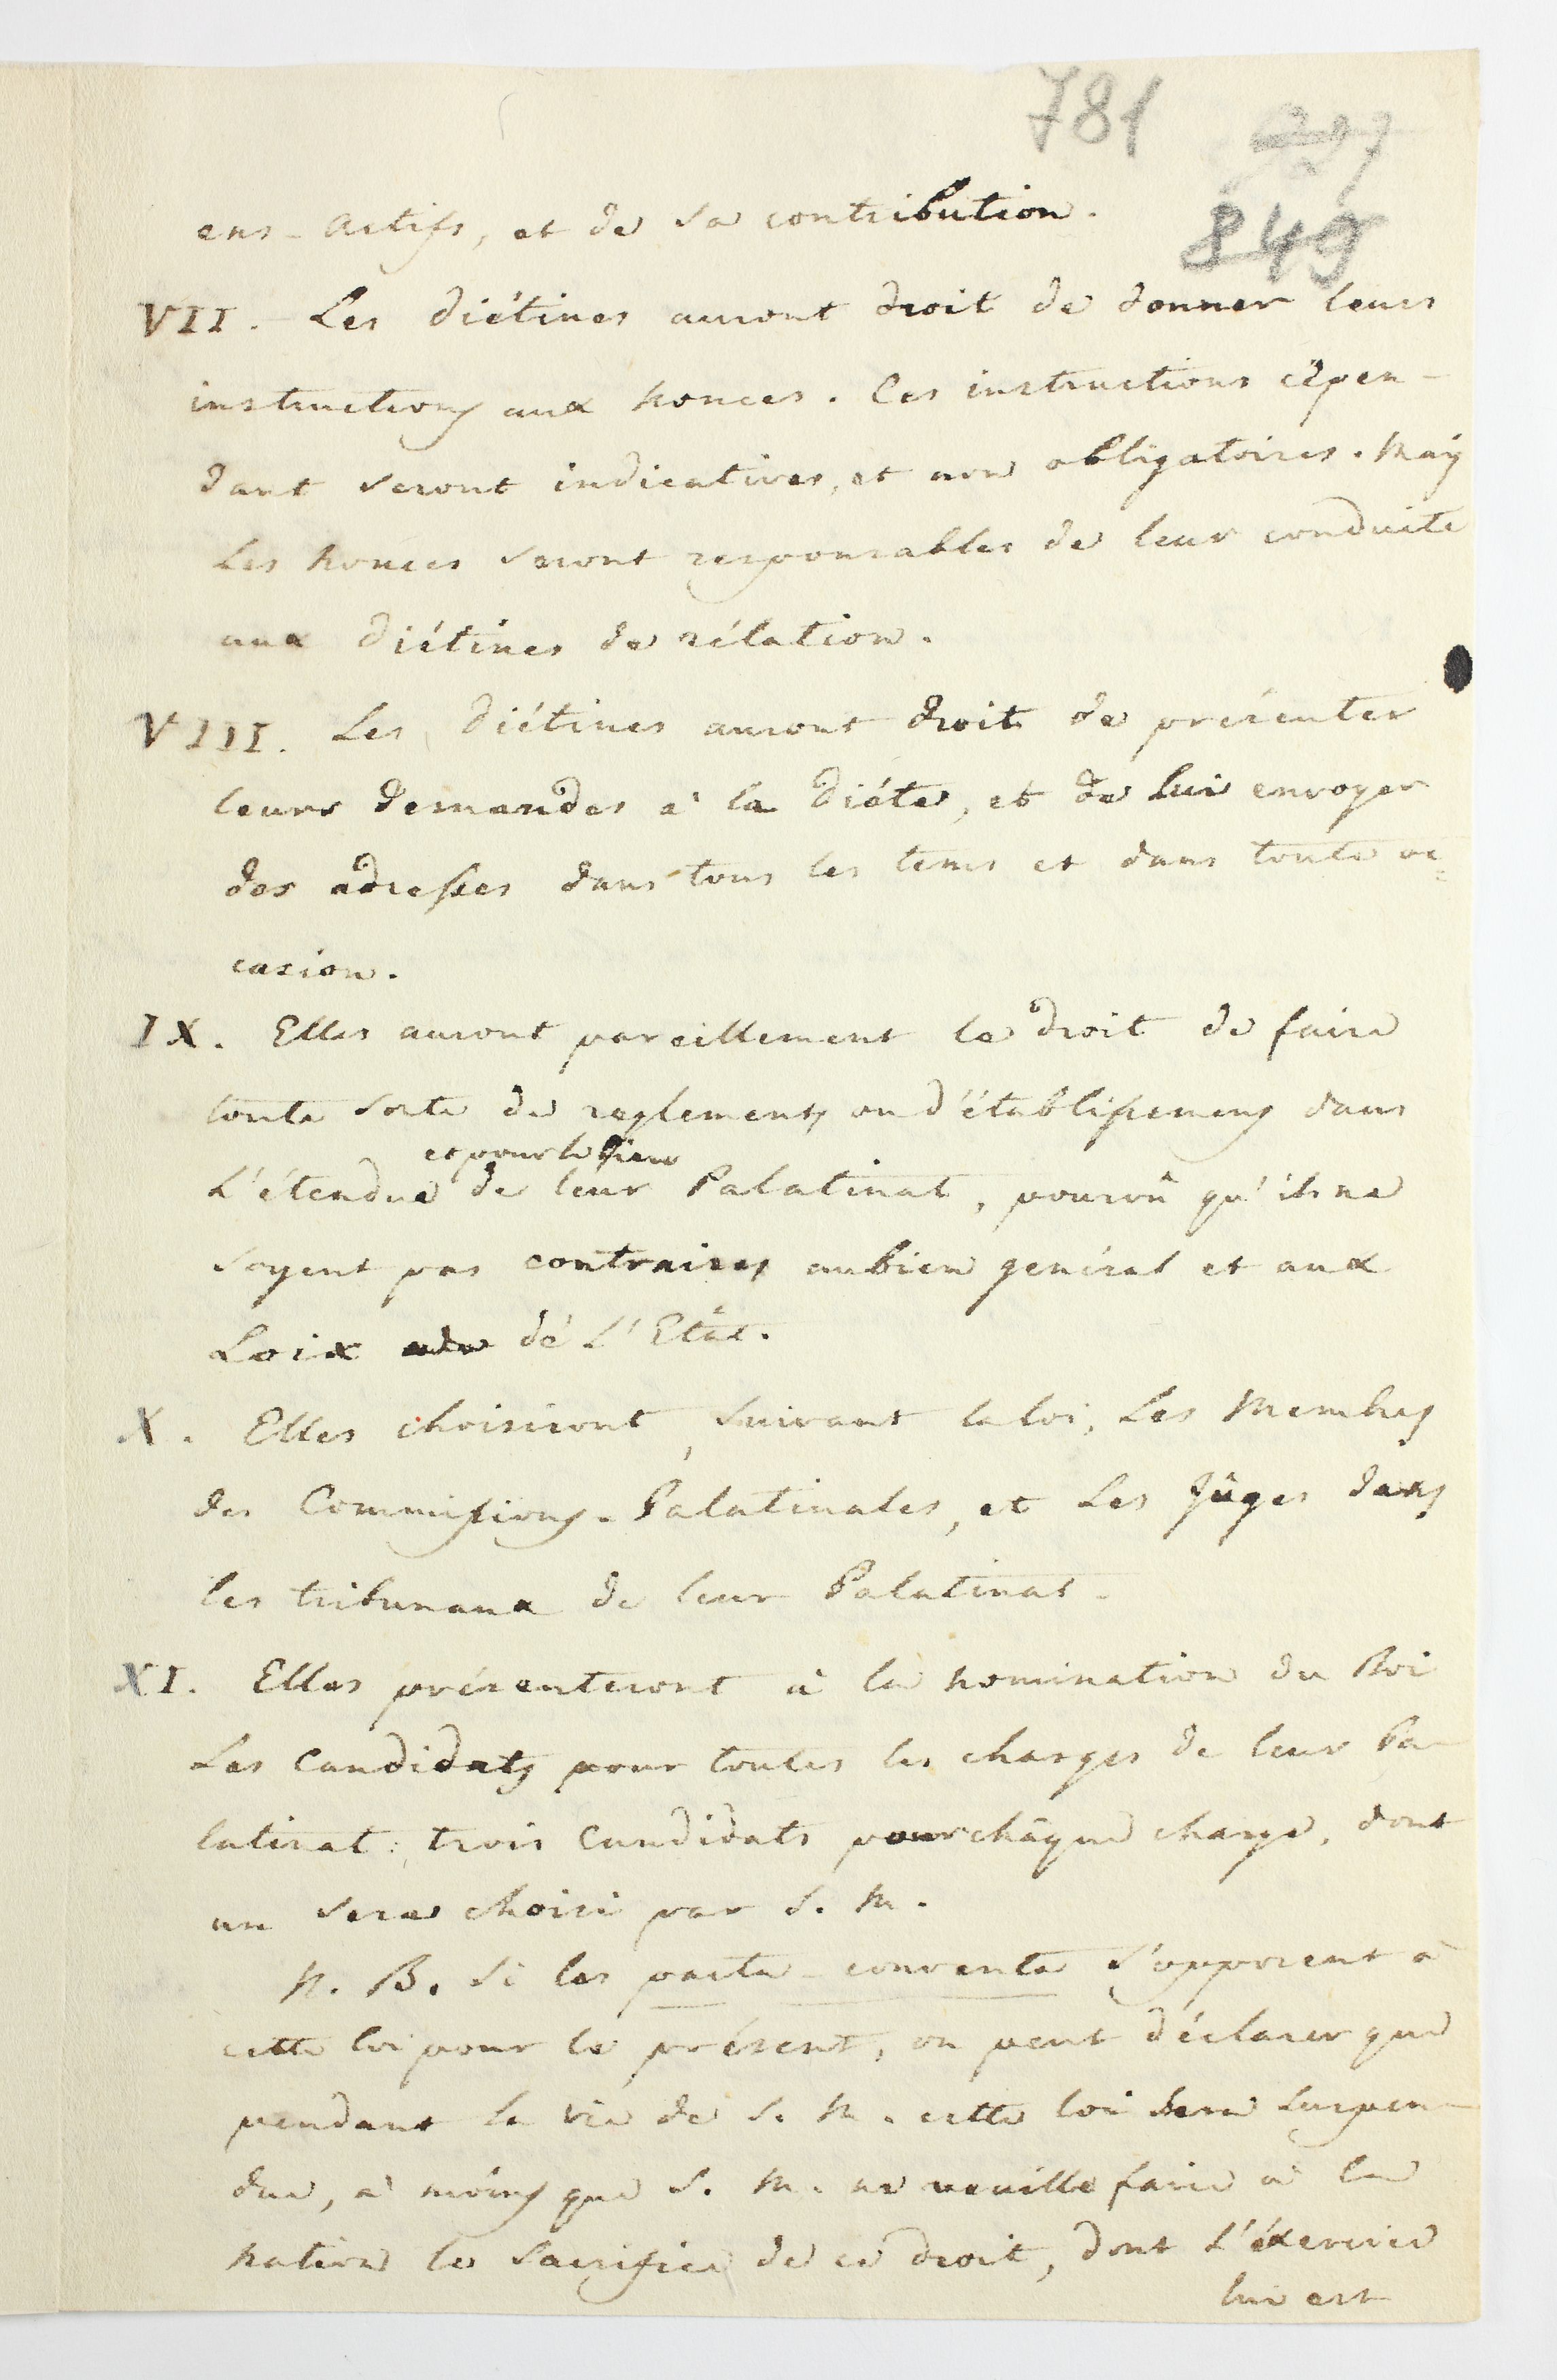 781
849
ens-actifs, et de sa contribution.
VII. Les diétines auront droit de donner leurs
instructions aux Nonces. Ces instructions cépen-
dant seront indicatives, et non obligatoires. Mais
Les Nonces seront responsables de leur conduite
aux diétines de rélation.
VIII. Les diétines auront droit de présenter
leurs demandes à la diéte, et de lui envoyer
des adresses dans tous les tems et dans toute oc=
casion.
IX. Elles auront pareillement le droit de faire
toute sorte de reglements ou d'établissemens dans
et pour le bien
L'étendue de leur Palatinat, pourvû qu'ils ne
soyent pas contraires au bien genéral et aux
Loix dé L'Etât.
X. Elles choisiront, suivant la loi, Les Membres
des Commissions-Palatinales, et Les Jûges dans
les tribunaux de leur Palatinat.
XI. Elles présenteront à la Nomination du Roi
Les Candidats pour toutes les charges de leur Pa-
latinat: trois Candidats pour châque charge, dont
un sera choisi par S. M.
N. B. Si les pacta-conventa s'opposent à
cette loi pour le présent, on peut déclarer que
pendant la vie de S. M. cette loi sera suspen-
due, à moins que S. M. ne veuille faire à la
Nation le sacrifice de ce droit, dont L'éxercice
lui est